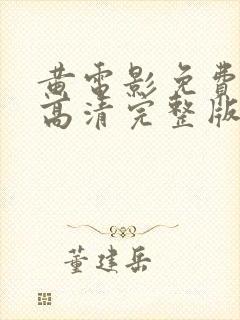 黄电影免费
高清完整版
董建岳